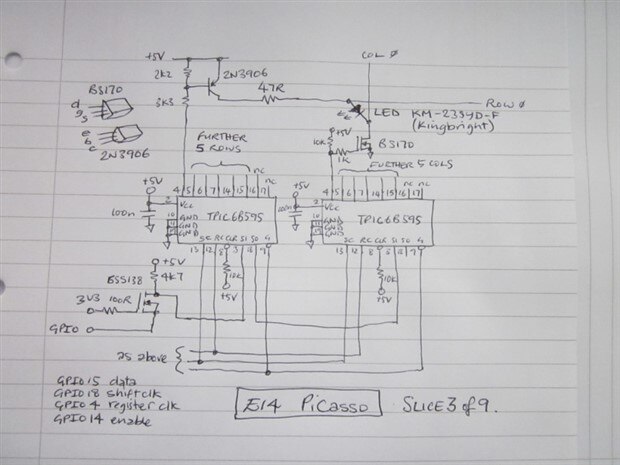 +5V
COL Ø
2K2
2N3906
BS170
d
g
s
47R
3K3
LED
KM-23SYD-F
(Kingbright)
ROW Ø
e
b
c
2N3906
FURTHER
5 ROWS
+5V
10K
1K
BS170
FURTHER 5 COLS
nc
nc
nc
nc
+5V
4 5 6 7 14 15 16 17
+5V
4 5 6 7 14 15 16 17
2 VCC
TPIC6B595
100n
10 GND
11 GND
19 GND
SC RC CLR SI SO G
13 12 8 3 18 9
2 VCC
TPIC6B595
100n
10 GND
11 GND
19 GND
SC RC CLR SI SO G
13 12 8 3 18 9
+5V
BSS138
4K7
10K
+5V
10K
+5V
3V3
100R
GPIO
as above
GPIO 15 data
GPIO 18 shift clk
GPIO 4 register clk
GPIO 14 enable
E14 PiCasso
SLICE 3 of 9.